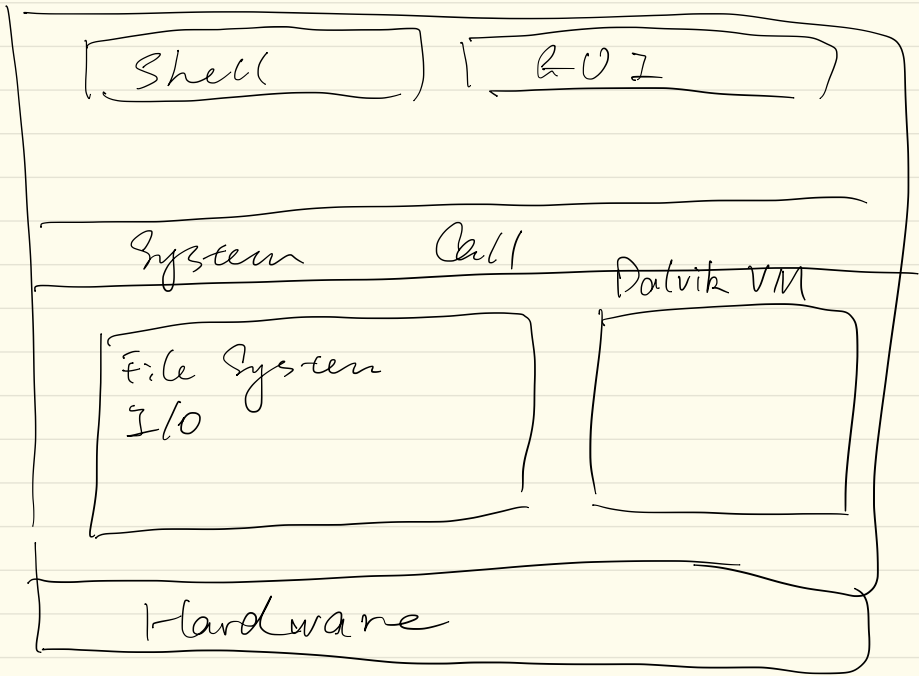 Shell
GUI
System Call
Dalvik VM
File System
I/O
Hardware